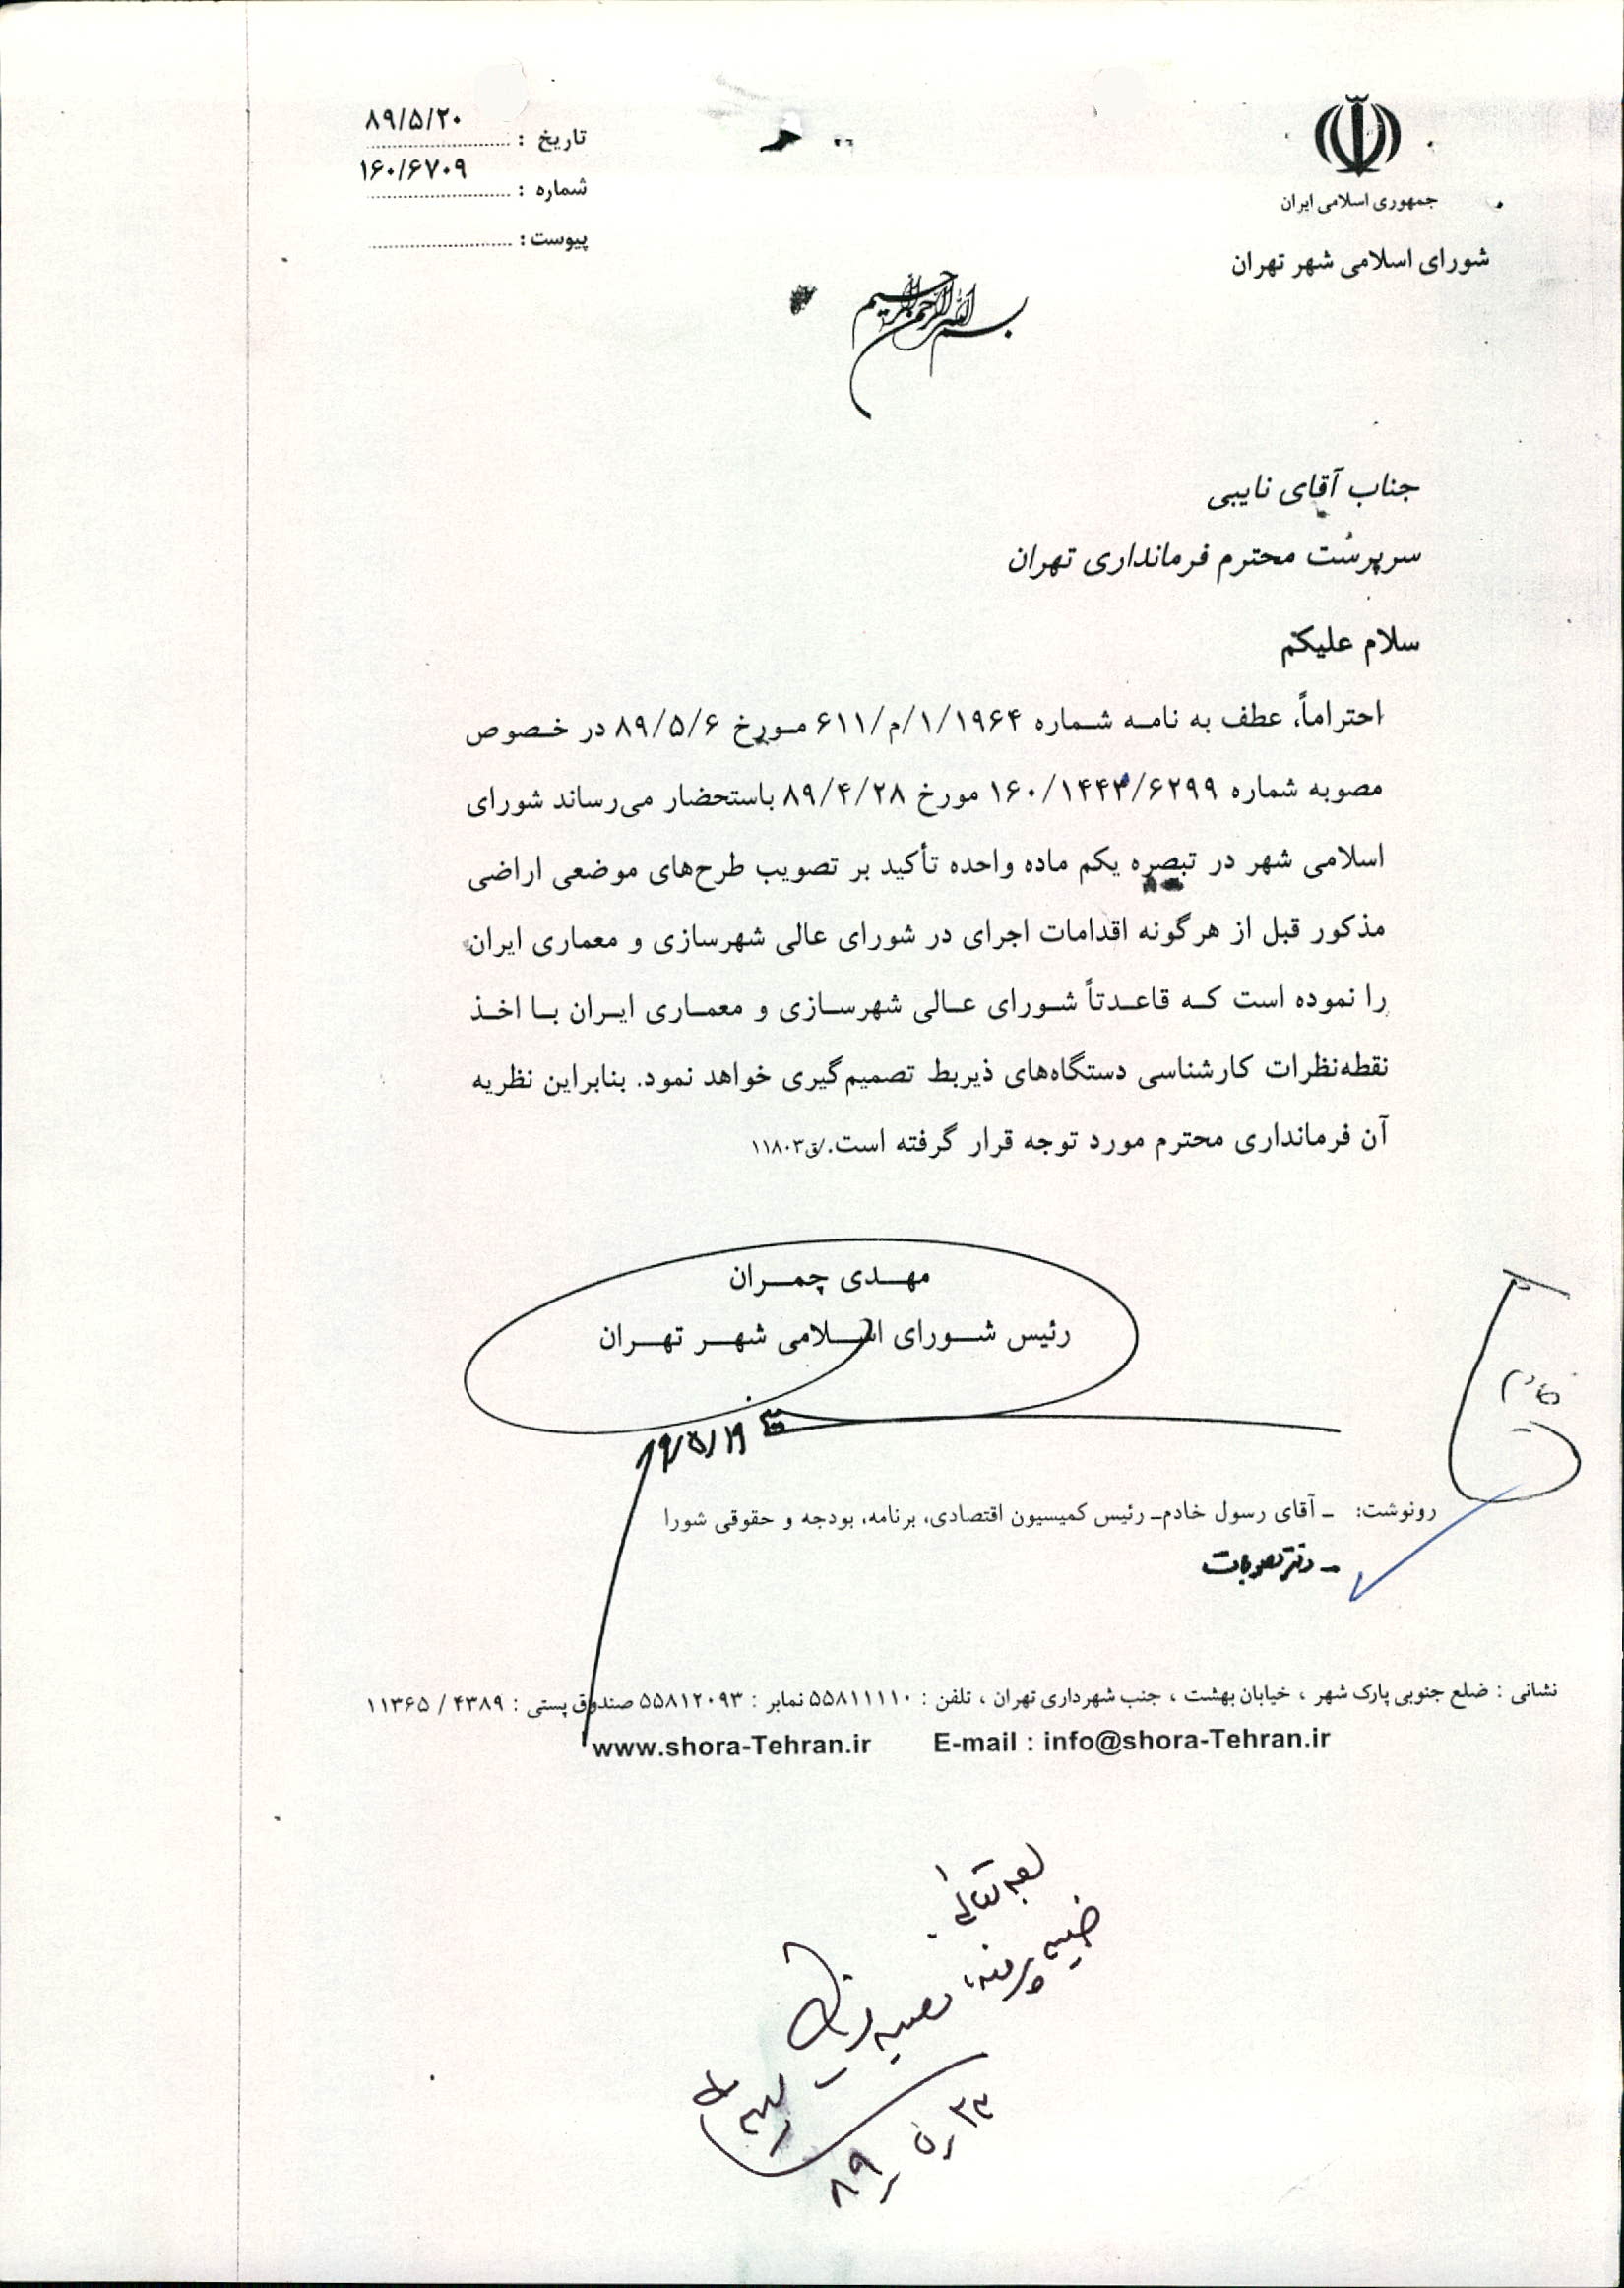 جمهوری اسلامی ایران
شورای اسلامی شهر تهران
تاریخ : ۸۹/۵/۲۰
شماره : ۱۶۰/۶۷۰۹
پیوست :
بسم الله الرحمن الرحیم
جناب آقای نایبی
سرپرست محترم فرمانداری تهران
سلام علیکم
احتراماً، عطف به نامه شماره ۶۱۱/م/۱/۱۹۶۴ مورخ ۸۹/۵/۶ در خصوص
مصوبه شماره ۱۶۰/۱۴۴۳/۶۲۹۹ مورخ ۸۹/۴/۲۸ باستحضار می‌رساند شورای
اسلامی شهر در تبصره یکم ماده واحده تأکید بر تصویب طرح‌های موضعی اراضی
مذکور قبل از هرگونه اقدامات اجرای در شورای عالی شهرسازی و معماری ایران
را نموده است که قاعدتاً شورای عالی شهرسازی و معماری ایران با اخذ
نقطه‌نظرات کارشناسی دستگاه‌های ذیربط تصمیم‌گیری خواهد نمود. بنابراین نظریه
آن فرمانداری محترم مورد توجه قرار گرفته است./ق۱۱۸۰۳
مهدی چمران
رئیس شورای اسلامی شهر تهران
۸۹/۵/۱۹
رونوشت: ـ آقای رسول خادم ـ رئیس کمیسیون اقتصادی، برنامه، بودجه و حقوقی شورا
ـ دفتر مصوبات
نشانی : ضلع جنوبی پارک شهر ، خیابان بهشت ، جنب شهرداری تهران ، تلفن : ۵۵۸۱۱۱۱۰ نمابر : ۵۵۸۱۲۰۹۳ صندوق پستی : ۴۳۸۹ / ۱۱۳۶۵
www.shora-Tehran.ir E-mail : info@shora-Tehran.ir
ضمیمه پرونده مصوبه